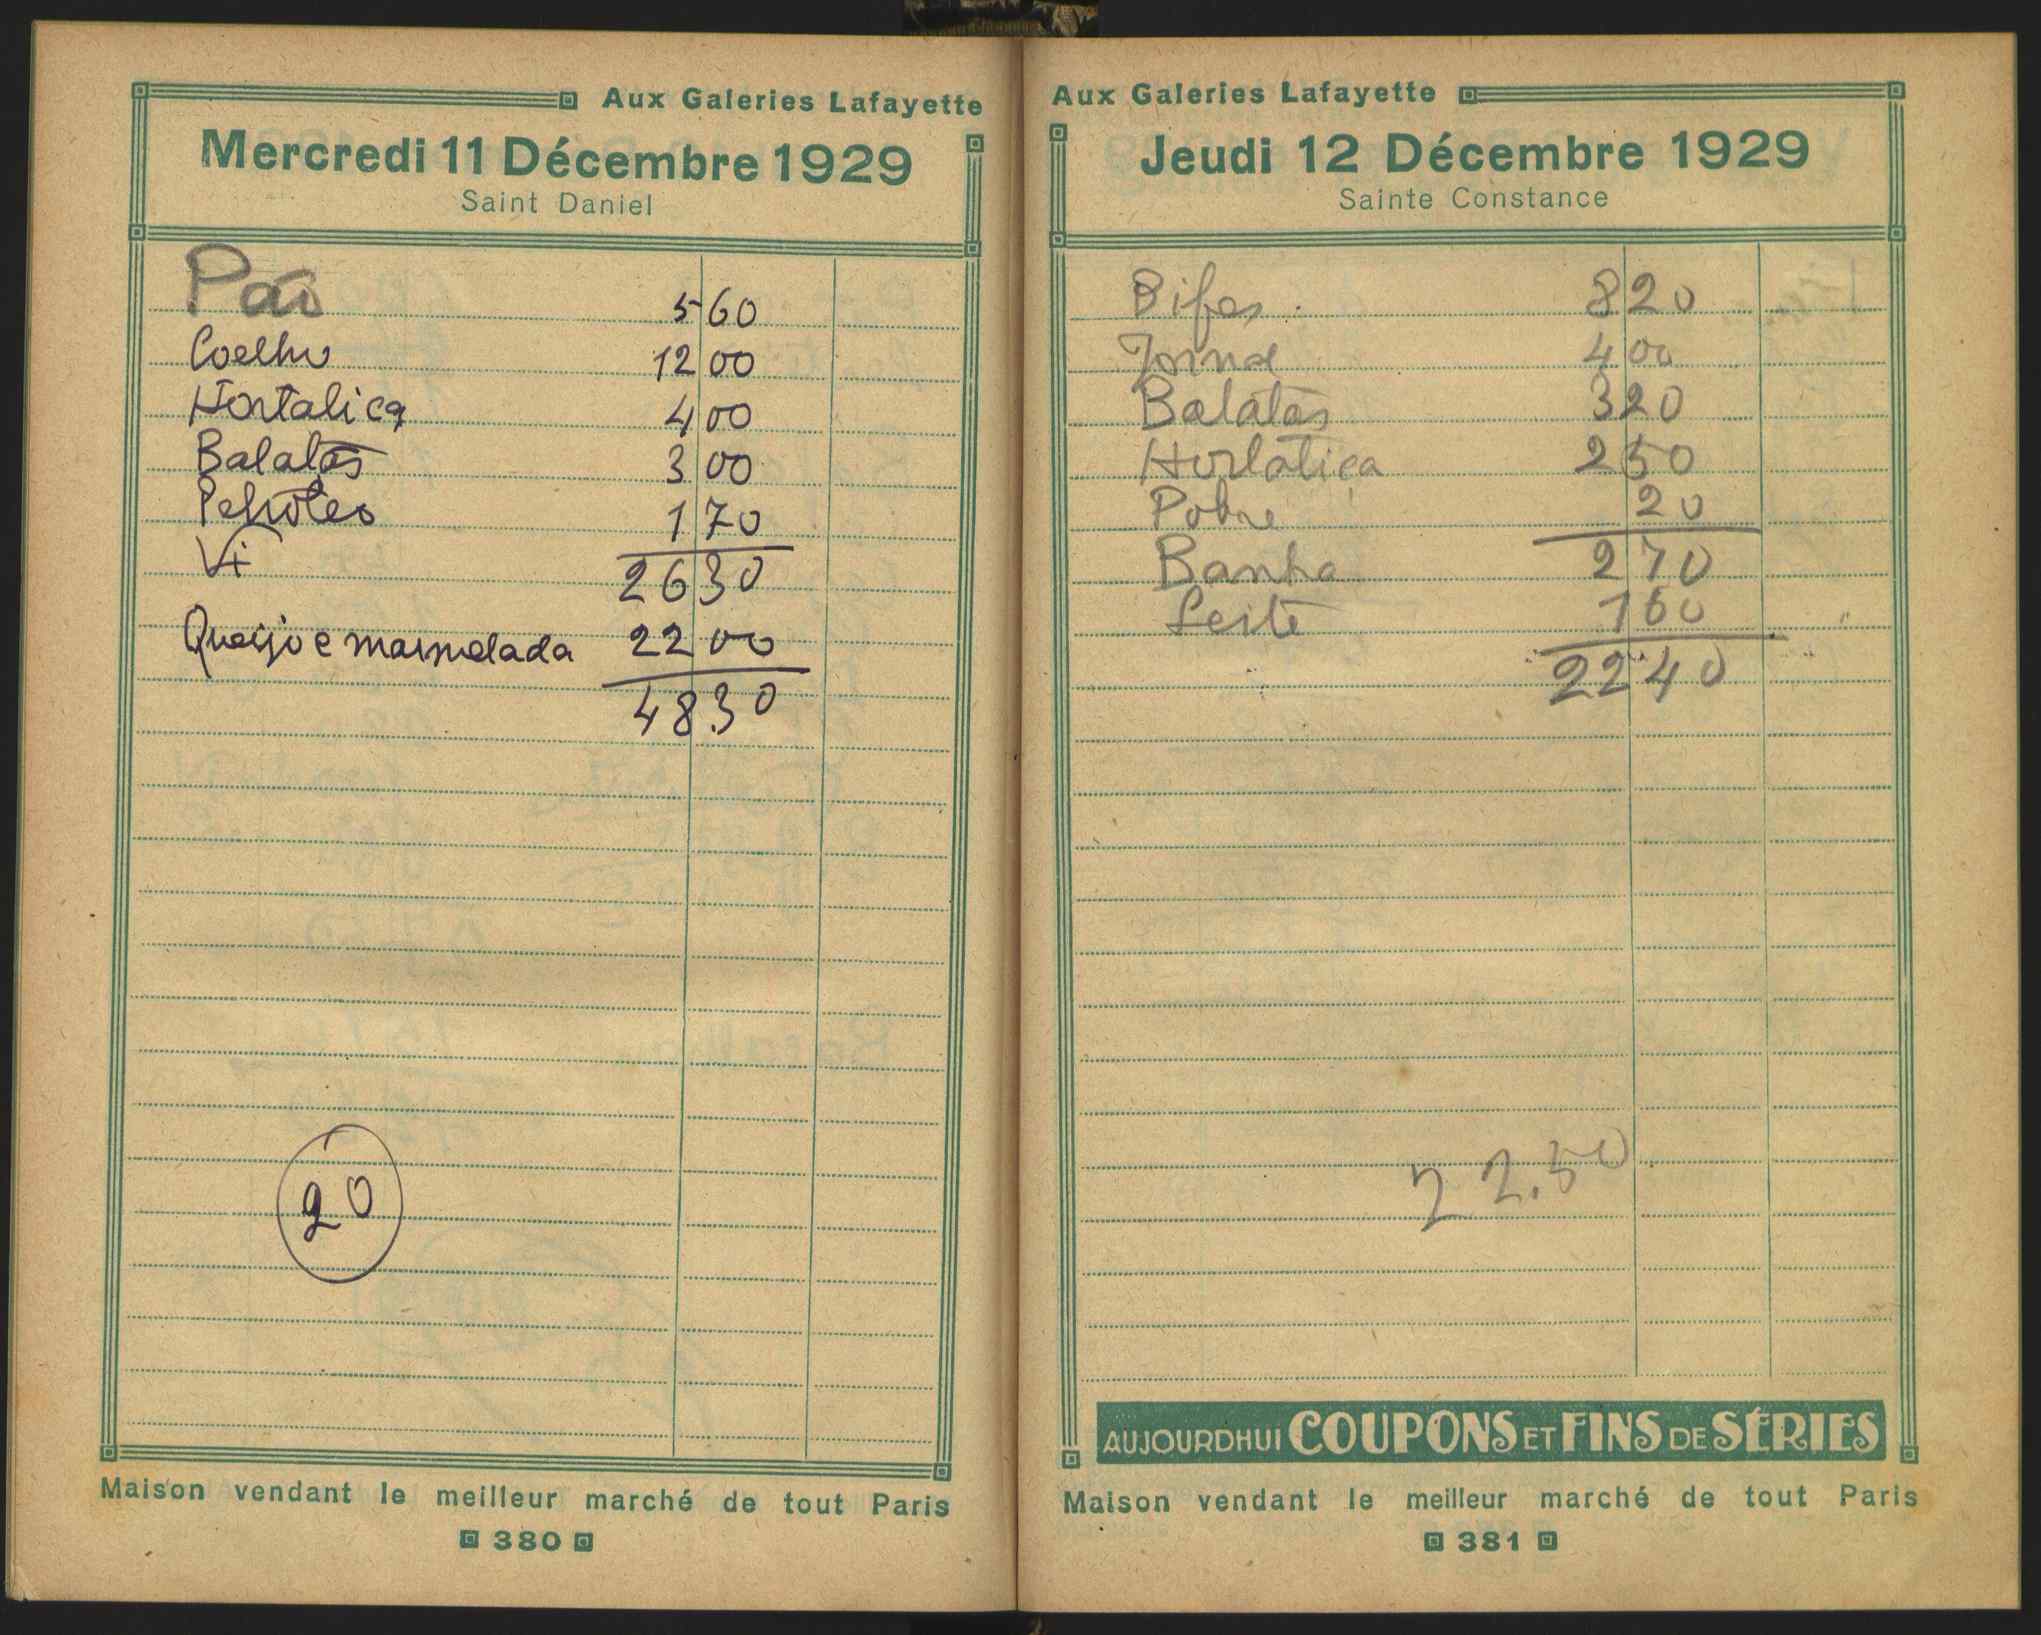 Aux Galeries Lafayette
Mercredi 11 Décembre 1929
Saint Daniel
Pão 5 60
Coelho 12 00
Hortaliça 4 00
Batatas 3 00
Petroleo 1 70
26 30
Queijo e marmelada 22 00
48.30
20
Maison vendant le meilleur marché de tout Paris
380
Aux Galeries Lafayette
Jeudi 12 Décembre 1929
Sainte Constance
Bifes 8 20
Jorna 4 00
Batatas 3 20
Hortaliça 2 50
Pobre 20
Banha 2 70
Leite 1 60
22 40
22.50
AUJOURDHUI COUPONS ET FINS DE SÉRIES
Maison vendant le meilleur marché de tout Paris
381